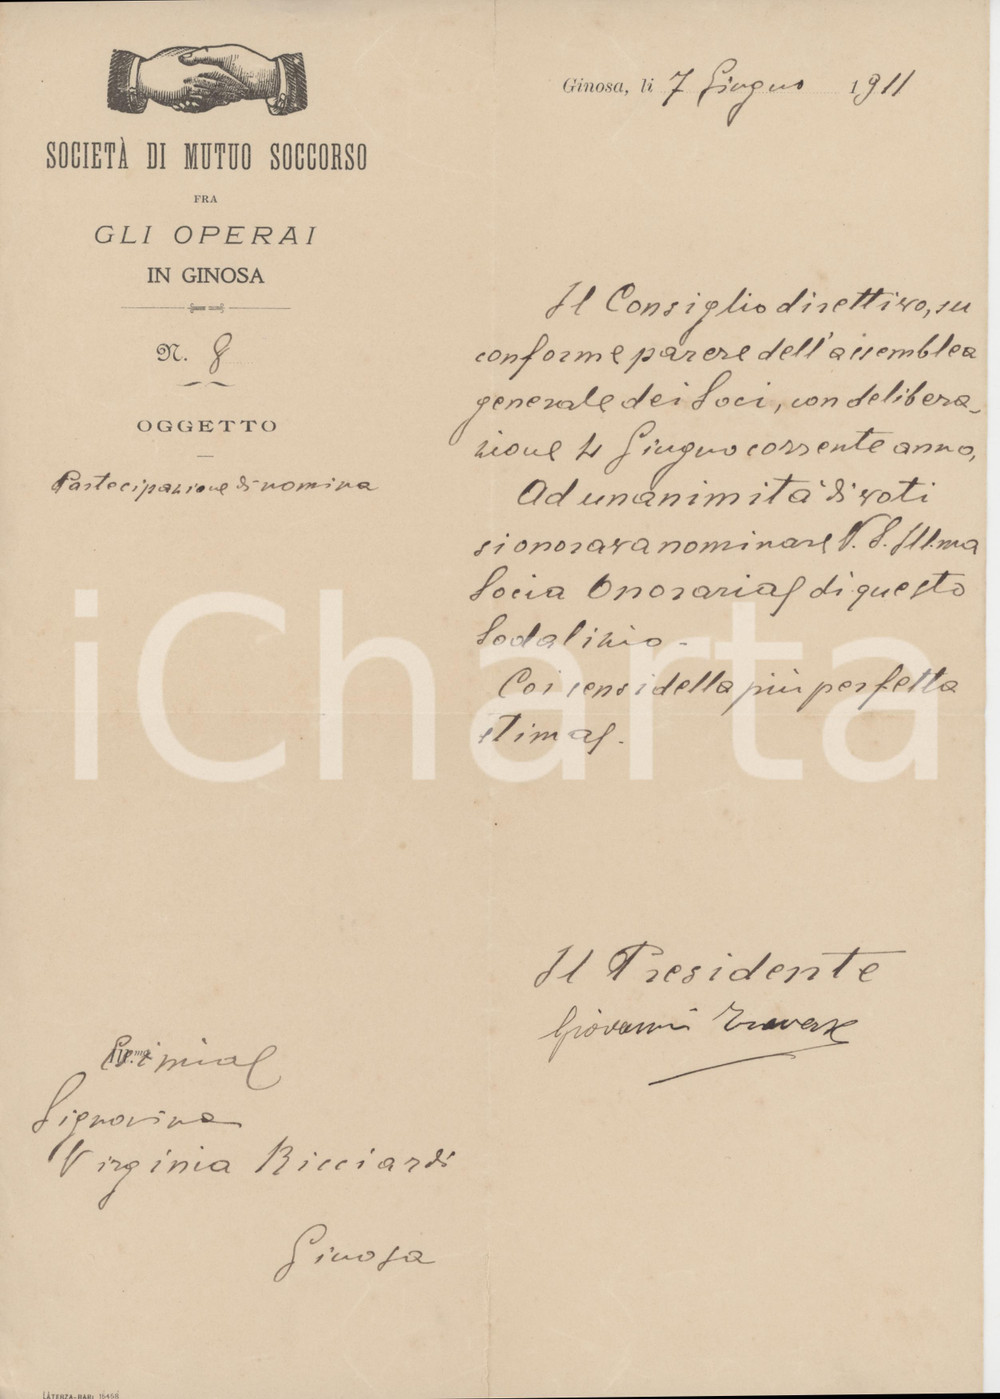 SOCIETÀ DI MUTUO SOCCORSO
FRA
GLI OPERAI
IN GINOSA
N. 8
OGGETTO
Partecipazione di nomina
Ginosa, li 7 Giugno 1911
Il Consiglio direttivo, su
conforme parere dell'assemblea
generale dei Soci, con delibera-
zione 4 Giugno corrente anno,
Ad unanimità di voti
si onorava nominare V. S. Ill.ma
Socia Onoraria di questo
Sodalizio -
Coi sensi della più perfetta
stima.
Il Presidente
Giovanni
Signorina
Virginia Ricciardi
Ginosa
LATERZA-BARI 15458
iCharta